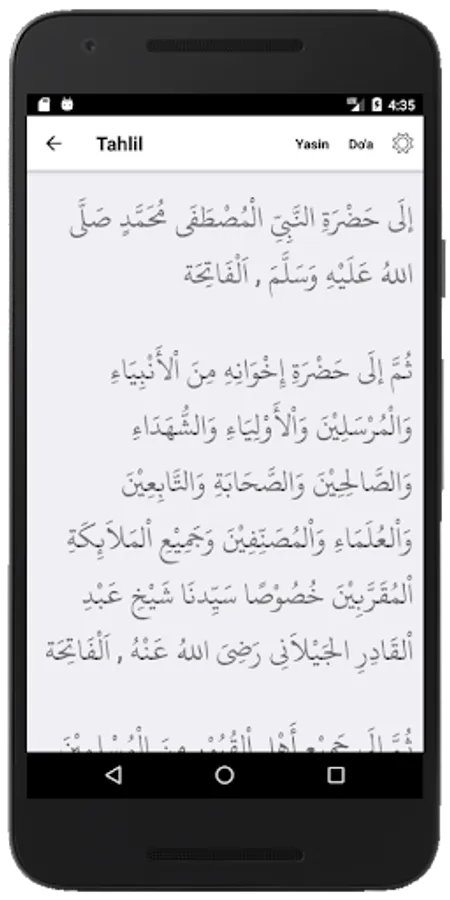 4:35
Tahlil Yasin Do'a
إلَى حَضْرَةِ النَّبِيِّ الْمُصْطَفَى مُحَمَّدٍ صَلَّى
اللهُ عَلَيْهِ وَسَلَّمَ , اَلْفَاتِحَة
ثُمَّ إلَى حَضْرَةِ إِخْوَانِهِ مِنَ الْأَنْبِيَاءِ
وَالْمُرْسَلِيْنَ وَالْأَوْلِيَاءِ وَالشُّهَدَاءِ
وَالصَّالِحِيْنَ وَالصَّحَابَةِ وَالتَّابِعِيْنَ
وَالْعُلَمَاءِ وَالْمُصَنِّفِيْنَ وَجَمِيْعِ الْمَلَائِكَةِ
الْمُقَرَّبِيْنَ خُصُوْصًا سَيِّدِنَا شَيْخِ عَبْدِ
الْقَادِرِ الجَيْلَانِى رَضِىَ اللهُ عَنْهُ , اَلْفَاتِحَة
ثُمَّ إلَى جَمِيْعِ أَهْلِ الْقُبُوْرِ مِنَ الْمُسْلِمِيْنَ